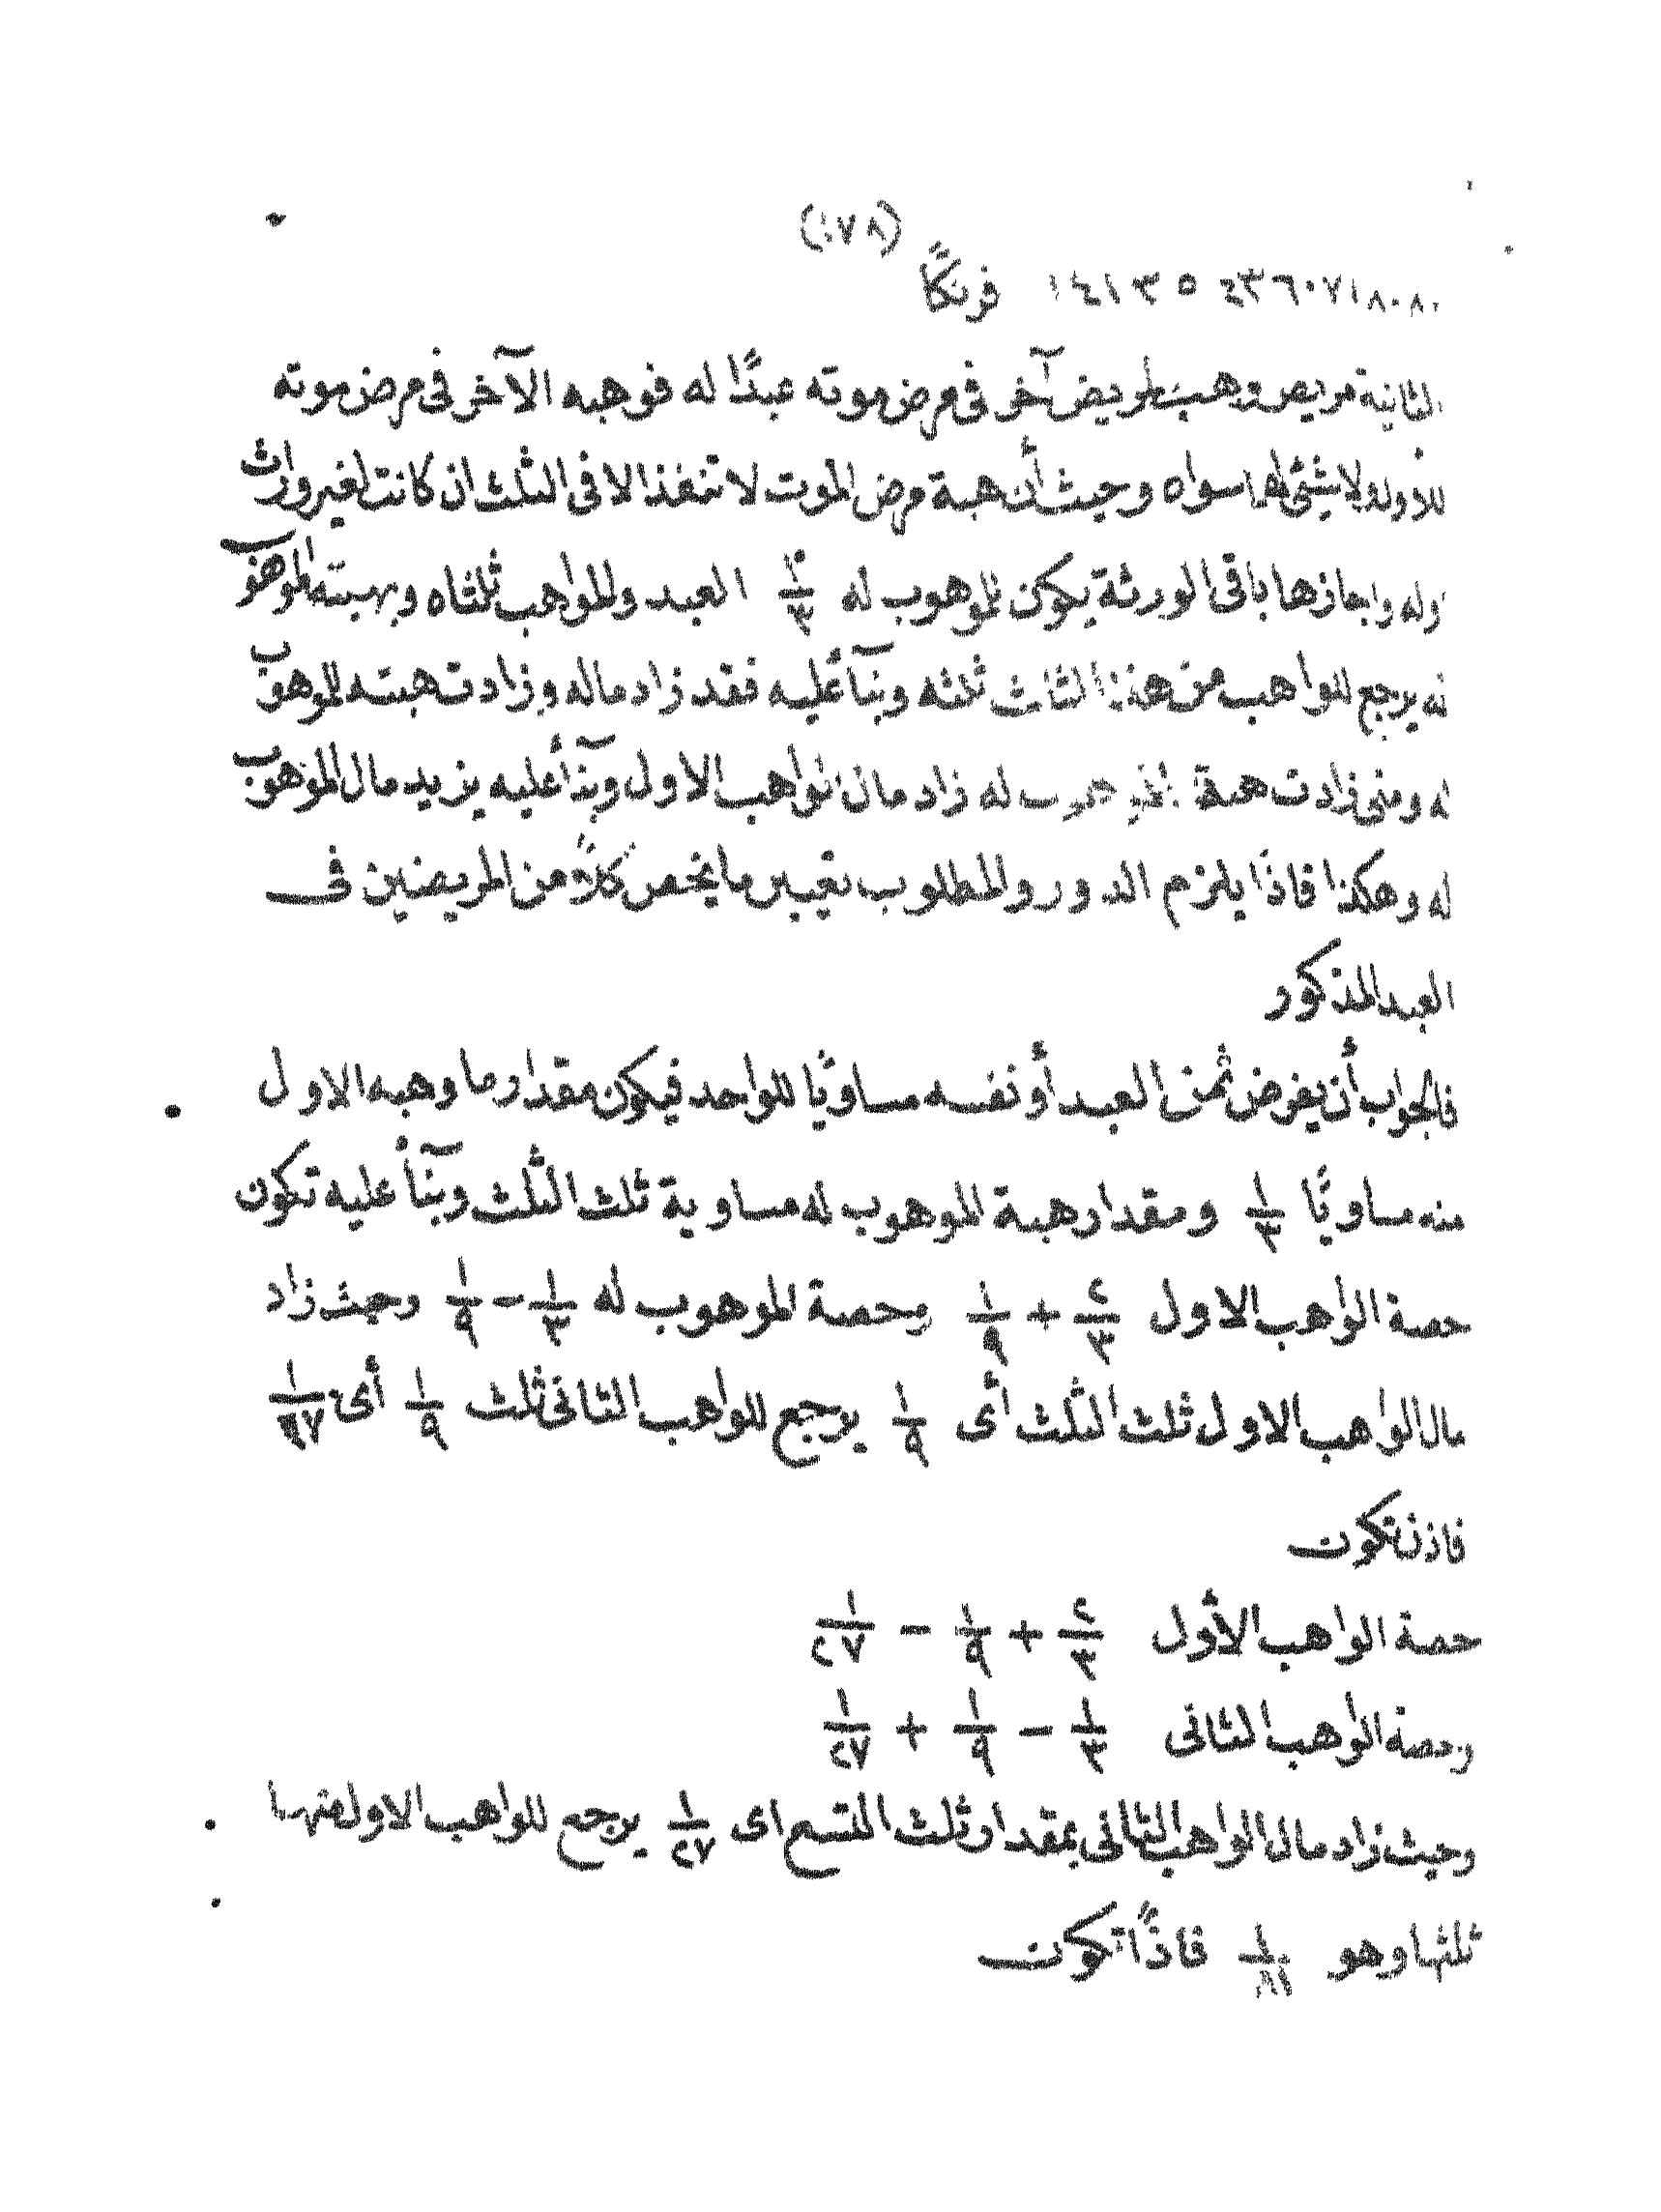 (١٧٨)
فرنكًا
الثانية مريض وهب لمريض آخر فى مرض موته عبدًا له فوهبه الآخر فى مرض موته
للأول ولا شئ لهما سواه وحيث أن هبة مرض الموت لا تنفذ الا فى الثلث ان كانت لغير وارث
وله واجازها باقى الورثة يكون للموهوب له ١/٣ العبد وللواهب ثلثاه وبهبته الموهوب
له يرجع للواهب من هذا الثلث ثلثه وبنآءً عليه فقد زاد ماله وزادت هبته للموهوب
له ومتى زادت هبة الموهوب له زاد مال الواهب الاول وبنآءً عليه يزيد مال الموهوب
له وهكذا فاذًا يلزم الدور والمطلوب تعيين ما يخص كلاًّ من المريضين فى
العبد المذكور
فالجواب أن يفرض ثمن العبد أو نفسه مساويًا للواحد فيكون مقدار ما وهبه الاول
منه مساويًا ١/٣ ومقدار هبة الموهوب له مساوية ثلث الثلث وبنآءً عليه تكون
حصة الواهب الاول ٢/٣ + ١/٩ وحصة الموهوب له ١/٣ − ١/٩ وحيث زاد
مال الواهب الاول ثلث الثلث أى ١/٩ يرجع للواهب الثانى ثلث ١/٩ أى ١/٢٧
فاذن تكون
حصة الواهب الأول ٢/٣ + ١/٩ − ١/٢٧
وحصة الواهب الثانى ١/٣ − ١/٩ + ١/٢٧
وحيث زاد مال الواهب الثانى بمقدار ثلث التسع اى ١/٢٧ يرجع للواهب الاول منها
ثلثها وهو ١/٨١ فاذًا تكون